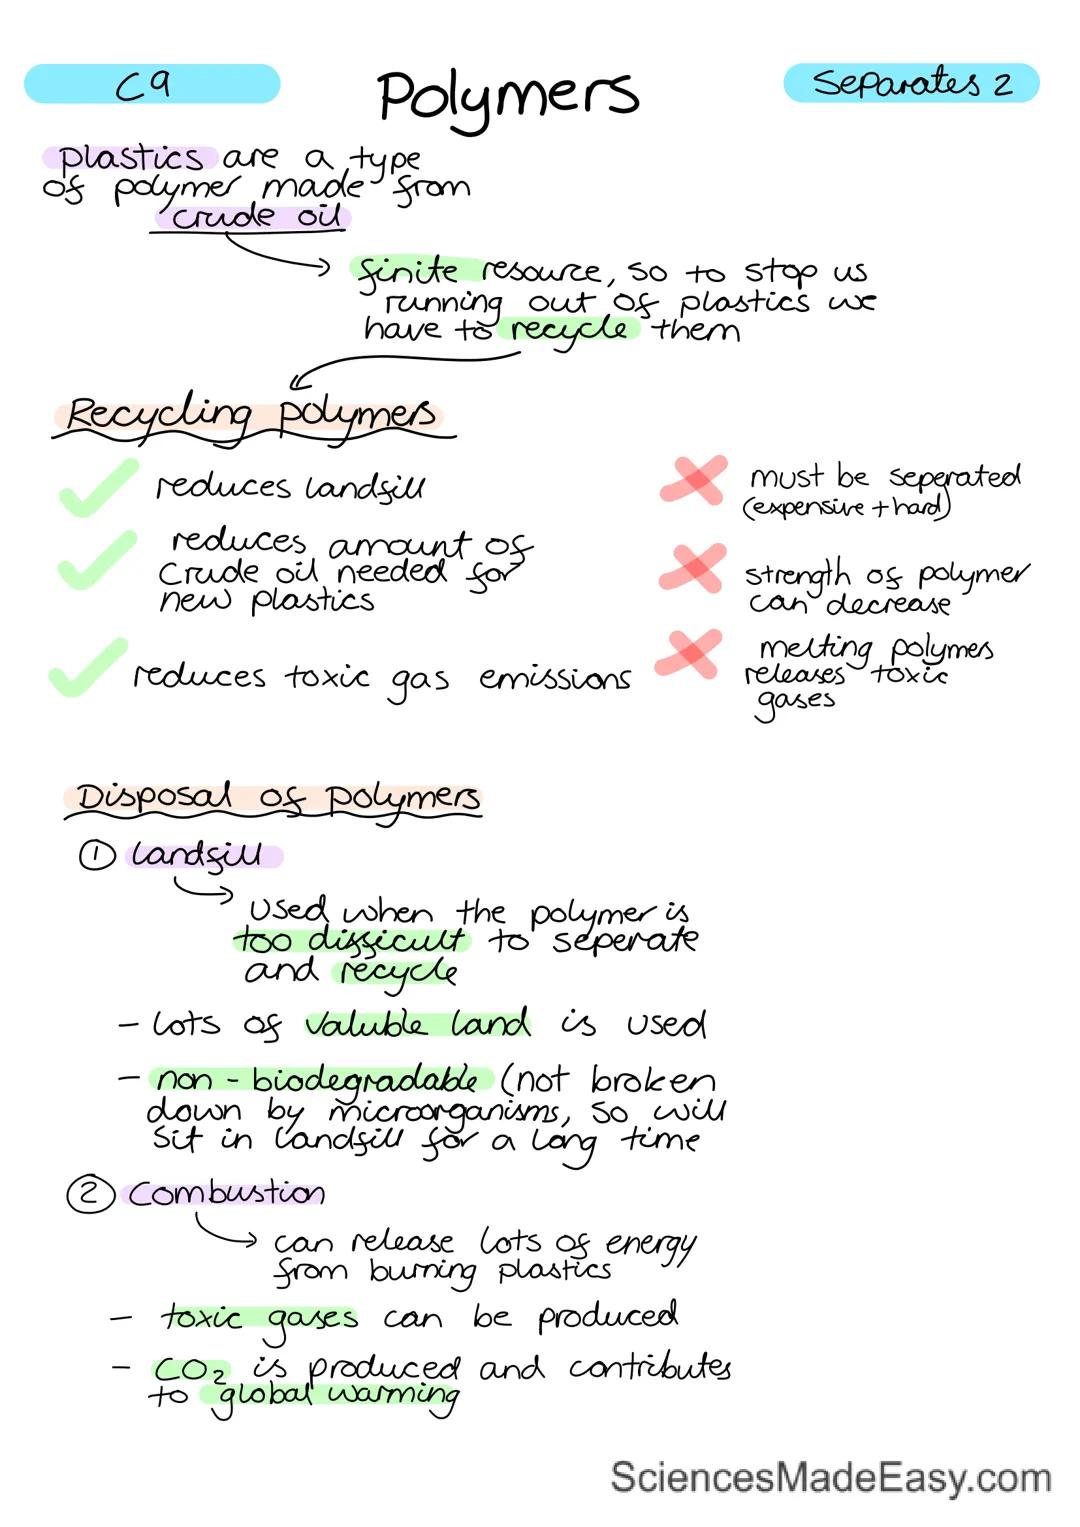 C9
Polymers
Separates 2
plastics are a type
of polymer made from
crude oil
finite resource, so to stop us
running out of plastics we
have to recycle them
Recycling polymers
reduces landfill
reduces amount of
crude oil needed for
new plastics
reduces toxic gas emissions
must be seperated
(expensive + hard)
strength of polymer
can decrease
melting polymers
releases toxic
gases
Disposal of polymers
① landfill
Used when the polymer is
too difficult to seperate
and recycle
- lots of valuble land is used
- non-biodegradable (not broken
down by microorganisms, so will
sit in landfill for a long time
② Combustion
can release lots of energy
from burning plastics
- toxic gases can be produced
- CO₂ is produced and contributes
to global warming
SciencesMadeEasy.com